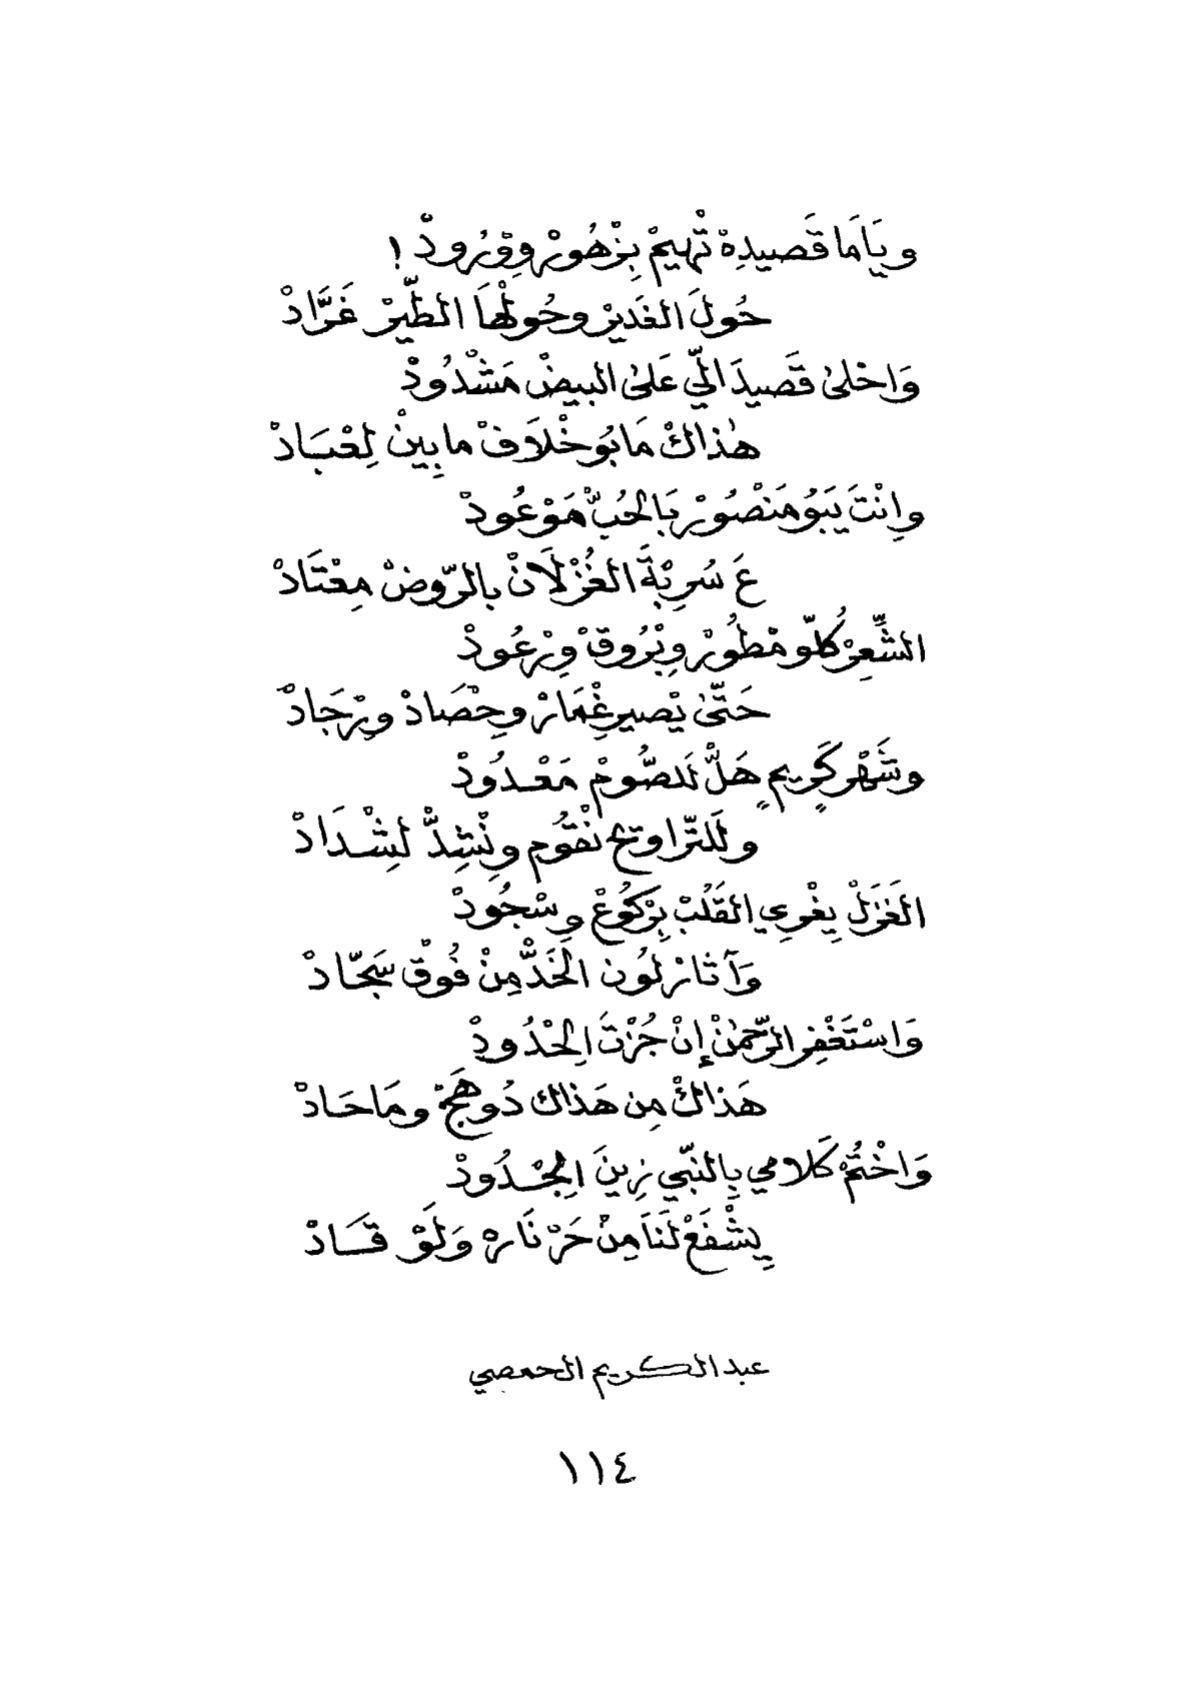 ويَاَمَا قَصيدِهْ تْهيمْ بِزْهُورْ ووْرُودْ !
حُولَ الغَديرْ وحُولْهَا الطّيرْ غَرَّادْ
وَاحْلىٰ قَصيدَ الّي عَلىٰ البيضْ مَشْدُودْ
هٰذاكْ مَا بُو خْلَافْ ما بِينْ لِعْبَادْ
وإِنْتَ يَبُو مَنْصُورْ بَالحُبّْ مَوْعُودْ
عَ سُرِبْةَ الغُزْلَانْ بالرّوضْ مِعْتَادْ
الشِّعِرْ كُلّو مْطُورْ وِبْرُوقْ وِرْعُودْ
حَتّىٰ يْصير غْمَارْ وحِصَادْ ورْجَادْ
وشَهْر كَرِيمٍ هَلّْ لَلصُّومْ مَعْدُودْ
وللَتّراويح نْقُوم ونْشِدّْ لَشِدَادْ
الغَزَلْ يِغْرِي القَلْبْ بِرْكُوعْ وِسْجُودْ
وَآثارْ لُون الخَدّْ مِنْ فُوقْ سَجّادْ
وَاسْتَغْفِر الرّحمٰنْ إنْ جُزْتَ الِحْدُودْ
هَذاكْ مِن هَذاك دُوهَجْ ومَاحَادْ
وَاخْتُمْ كَلامي بِالنّبي زينَ الِجْدُودْ
يِشْفَعْ لَنَا مِنْ حَرْ نَارهْ وَلَوْ قَادْ
عبد الكريم الحمصي
١١٤